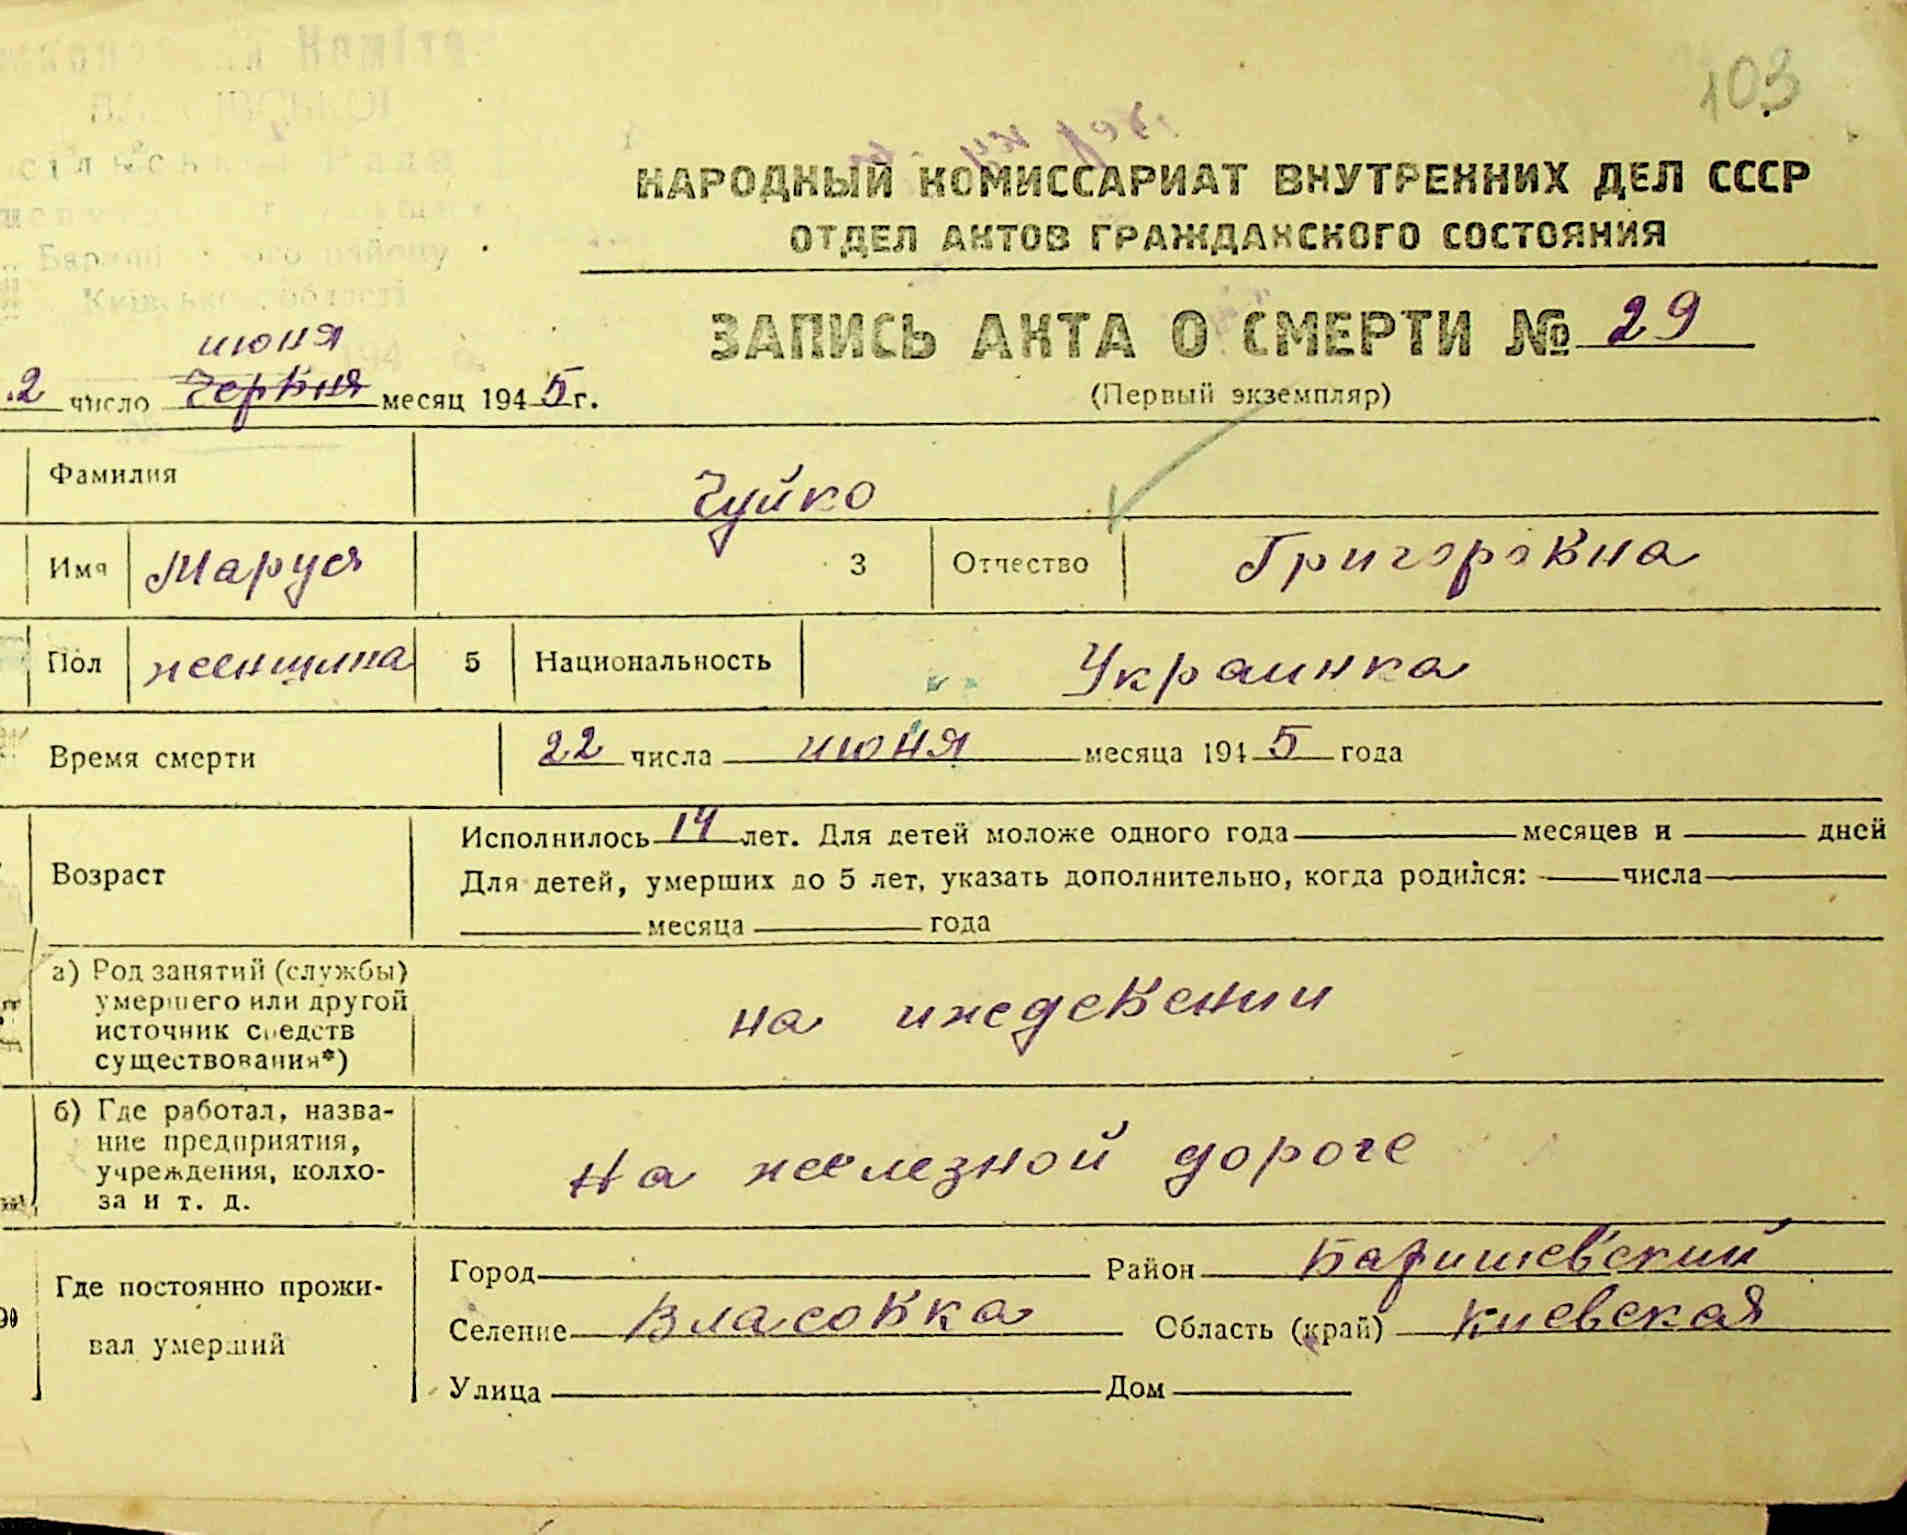 103
НАРОДНЫЙ КОМИССАРИАТ ВНУТРЕННИХ ДЕЛ СССР
ОТДЕЛ АКТОВ ГРАЖДАНСКОГО СОСТОЯНИЯ
Барыш ого району
Київсько області
ЗАПИСЬ АКТА О СМЕРТИ № 29
(Первый экземпляр)
июня
2 число червня месяц 1945 г.
Фамилия Чуйко
Имя Маруся 3 Отчество Григоровна
Пол женщина 5 Национальность Украинка
Время смерти 22 числа июня месяца 1945 года
Возраст
Исполнилось 14 лет. Для детей моложе одного года месяцев и дней
Для детей, умерших до 5 лет, указать дополнительно, когда родился: числа
месяца года
а) Род занятий (службы)
умершего или другой
источник средств
существования*)
на ижедевении
б) Где работал, назва-
ние предприятия,
учреждения, колхо-
за и т. д.
На железной дороге
Где постоянно прожи-
вал умерший
Город Район Баришевский
Селение Власовка Область (край) Киевская
Улица Дом